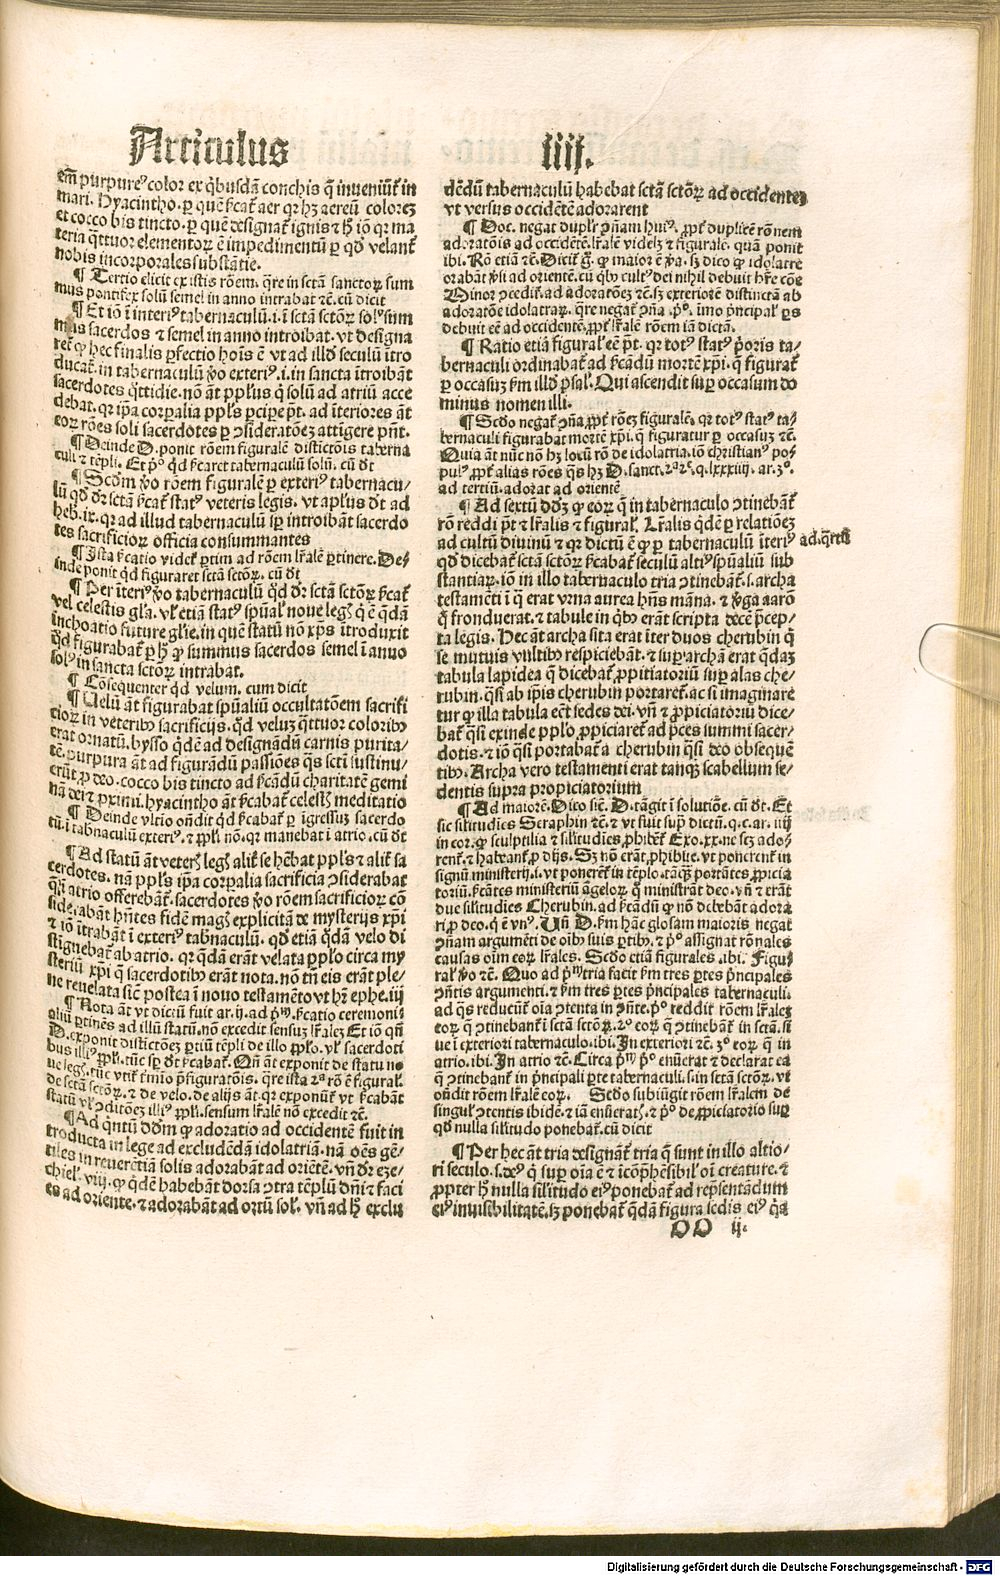 Articulus
iiij.
em̄ purpure⁹ color ex q̇busdā conchis q̄ inueniūt᷑ in
mari. Hyacintho. ꝑ quē ſcat᷑ aer qꝛ hꝫ aereū coloreꝫ
et cocco bis tincto. ꝑ quē designat᷑ ignis ⁊ ħ iō qꝛ ma
teria q̄ttuor elementoꝝ ē impedimentū ꝑ qd̄ velant᷑
nobis incorporales substātie.
¶ Tertio elicit ex istis rōem. q̄re in sctā sanctoꝝ sum
mus pontifex solū semel in anno intrabat ⁊c̄. cū dicit
¶ Et iō ī interi⁹ tabernaculū. i. ī sctā sctōꝝ sol⁹ sum
mus sacerdos ⁊ semel in anno introibat. vt designa
ret᷑ ꝙ hec finalis ꝑfectio hoīs ē vt ad illd̄ seculū ītro
ducat᷑. in tabernaculū v̊o exteri⁹. i. in sancta ītroibāt
sacerdotes q̄ttidie. nō āt ppłus q̇ solū ad atriū acce
debat. qꝛ ip̄a corꝑalia ppłs ꝑcipe pt̄. ad īteriores āt
eoꝝ rōes soli sacerdotes ꝑ ꝯsideratōeꝫ attīgere pn̄t.
¶ Deinde D. ponit rōem figuralē distictōis taberna
culi ⁊ tēpli. Et p̊ qd̄ ſcaret tabernaculū solū. cū dt̄
¶ Scdm̄ v̊o rōem figuralē ꝑ exteri⁹ tabernacu/
lū qd̄ dr̄ sctā ſcat᷑ stat⁹ veteris legis. vt apłus dt̄ ad
heb. ix. qꝛ ad illud tabernaculū sꝑ introibāt sacerdo
tes sacrificioꝝ officia consummantes
¶ Ista ſcatio videt᷑ ꝑtim ad rōem lr̄alē ꝑtinere. De/
inde ponit qd̄ figuraret sctā sctōꝝ. cū dt̄
¶ Per īteri⁹ v̊o tabernaculū qd̄ dr̄ sctā sctōꝝ ſcat᷑
vel celestis gła. vł etiā stat⁹ spūal᷑ noue leg᷑ q̄ ē q̄dā
inchoatio future głie. in quē statū nō xp̄s ītroduxit
qd̄ figurabat᷑ ꝑ ħ ꝙ summus sacerdos semel ī anno
sol⁹ in sancta sctoꝝ intrabat.
¶ Cōsequenter qd̄ velum. cum dicit
¶ Uelū āt figurabat spūaliū occultatōem sacrifi
cioꝝ in veteribꝰ sacrificijs. qd̄ veluꝫ q̄ttuor coloribꝰ
erat ornatū. bysso q̇dē ad designādū carnis purita/
tē. purpura āt ad figurādū passiōes q̄s scti sustinu/
erūt ꝓ deo. cocco bis tincto ad ſcādū charitatē gemi
nā dei ⁊ proximi. hyacintho āt ſcabat᷑ celest᷑ meditatio
¶ Deinde vltio oñdit qd̄ ſcabat᷑ ꝑ īgressuꝫ sacerdo
tū. ī tabnaculū exteri⁹. ⁊ ppłi nō. qꝛ manebat ī atrio. cū dt̄
¶ Ad statū āt veter᷑ leg᷑ alit᷑ se hēbat ppłs ⁊ alit᷑ sa
cerdotes. nā ppłs ip̄a corꝑalia sacrificia ꝯsiderabat
q̄ ī atrio offerebāt᷑. sacerdotes v̊o rōem sacrificioꝝ cō
siderabāt hñtes fidē mag᷑ explicitā de mysterijs xp̄i
⁊ iō ītrabāt ī exteri⁹ tabnaculū. qd̄ etiā q̄dā velo di
stiguebat᷑ ab atrio. qꝛ q̄dā erāt velata ppło circa my
steriū xp̄i q̄ sacerdotibꝰ erāt nota. nō tn̄ eis erāt ple/
ne reuelata sic̄ postea ī nouo testamēto vt hr̄ ephe. iij
¶ Nota āt vt dictū fuit ar. ij. ad p̄ᵐ. ſcatio ceremoni/
aliū ꝑtinēs ad illū statū. nō excedit sensuꝫ lr̄aleꝫ Et iō qn̄
D. exponit distictōeꝫ ꝑtiū tēpli de illo ppło. vł sacerdoti
bus illi⁹ ppłi. tūc sꝑ dt̄ ſcabat᷑. Qn̄ āt exponit de statu no
ue leg᷑. tūc vtit᷑ t᷑mīo p̄figuratōis. q̄re ista 2ᵃ rō ē figural᷑
de sctā sctōꝝ. ⁊ de velo. de alijs āt. qꝛ exponūt᷑ vt ſcabāt
statū vł ꝯditōeꝫ illi⁹ ppłi. sensum lr̄alē nō excedit ⁊c̄.
¶ Ad q̇ntū dd̄m ꝙ adoratio ad occidentē fuit in
troducta in lege ad excludēdā idolatriā. nā oēs gē/
tiles in reuerētiā solis adorabāt ad oriētē. vn̄ dr̄ eze/
chiel. viij. ꝙ q̇dē habebāt dorsa ꝯtra tēplū dn̄i ⁊ faci
es ad oriente. ⁊ adorabāt ad ortū sol᷑. vn̄ ad ħ exclu
dēdū tabernaculū habebat sctā sctōꝝ ad occidenteꝫ
vt versus occidētē adorarent
¶ Doc. negat dupłr ꝯñam hui⁹. ꝓpt᷑ duplicē rōnem
adoratōis ad occidētē. lr̄alē videlꝫ ⁊ figuralē. quā ponit
ibi. Rō etiā ⁊c̄. Dicit᷑ g̊. ꝙ maior ē v̊a. sꝫ dico ꝙ idolatre
orabāt v̊si ad orientē. cū q̇bꝰ cult⁹ dei nihil debuit hr̄e cōe
Minor ꝯcedit᷑. ad adoratōeꝫ ⁊c̄. sꝫ exteriorē distinctā ab
adoratōe idolatraꝝ. q̄re negat᷑ ꝯñā. p̊. imo p̄ncipal᷑ ꝑs
debuit eē ad occidentē. ꝓpt᷑ lr̄alē rōem iā dictā.
¶ Ratio etiā figural᷑ eē pt̄. qꝛ tot⁹ stat⁹ p̄oris ta/
bernaculi ordinabat᷑ ad ſcādū mortē xp̄i. q̄ figurat᷑
ꝑ occasuꝫ ẜm illd̄ psal᷑. Qui ascendit suꝑ occasum do
minus nomen illi.
¶ Scd̊o negat᷑ ꝯña ꝓpt᷑ rōeꝫ figuralē. qꝛ tot⁹ stat⁹ ta/
bernaculi figurabat mortē xp̄i. q̄ figuratur ꝑ occasuꝫ ⁊c̄.
Quia āt nūc nō hꝫ locū rō de idolatria. iō christian⁹ po/
pul⁹ ꝓpt᷑ alias rōes q̄s hꝫ D. sanct. 2ᵃ 2ᵉ. q. lxxxiiij. ar. 3°.
ad tertiū. adorat ad orientē
¶ Ad sextū dd̄ꝫ ꝙ eoꝝ q̄ in tabernaculo ꝯtinebāt᷑
rō reddi pt̄ ⁊ lr̄alis ⁊ figural᷑. Lr̄alis q̇dē ꝑ relatiōeꝫ
ad cultū diuinū ⁊ qꝛ dictū ē ꝙ ꝑ tabernaculū īteri⁹
qd̄ dicebat᷑ sctā sctōꝝ ſcabat᷑ seculū alti⁹ spūaliū sub
stantiaꝝ. iō in illo tabernaculo tria ꝯtinebāt᷑. s. archa
testamēti ī q̄ erat vrna aurea hñs māna. ⁊ v̊ga aarō
q̄ fronduerat. ⁊ tabule in q̇bꝰ erāt scripta decē p̄cep/
ta legis. Hec āt archa sita erat īter duos cherubin q̇
se mutuis vultibꝰ respiciebāt. ⁊ suꝑ archā erat q̄daꝫ
tabula lapidea q̄ dicebat᷑ ꝓpitiatoriū suꝑ alas che/
rubin. q̄si ab ip̄is cherubin portaret᷑. ac si imaginare
tur ꝙ illa tabula eēt sedes dei. vn̄ ⁊ ꝓpiciatoriū dice/
bat᷑ q̄si exinde ppło ꝓpiciaret᷑ ad p̄ces summi sacer/
dotis. ⁊ iō q̄si portabat᷑ a cherubin q̄si deo obsequē
tibꝰ. Archa vero testamenti erat tanqꝫ scabellum se/
dentis supra propiciatorium
¶ Ad maiorē. Dico sic̄. D. tāgit ī solutiōe. cū dt̄. Et
sic silitudies Seraphin ⁊c̄. ⁊ vt fuit sup̄ dictū. q. c. ar. iiij
in cor. ꝙ sculptilia ⁊ silitudies ꝓhibet᷑ Exo. xx. ne scꝫ ado/
rent᷑. ⁊ habeant᷑ ꝓ dijs. Sꝫ nō erāt ꝓhibite. vt ponerent᷑ in
signū ministerij. s. vt ponerēt᷑ in tēplo. tāqꝫ portātes ꝓpicia
toriū. ſcātes ministeriū āgeloꝝ q̇ ministrāt deo. vn̄ ⁊ erāt
due silitudies Cherubin. ad ſcādū ꝙ nō debebāt adora
ri ꝓ deo. q̇ ē vn⁹. Un̄ D. ẜm hāc glosam maioris negat
ꝯñam argumēti de oībꝰ suis ꝑtibꝰ. ⁊ p̊ assignat rōnales
causas oīm eoꝝ lr̄ales. Scd̊o etiā figurales. ibi. Figu
ral᷑ v̊o ⁊c̄. Quo ad p̄ᵐ tria facit ẜm tres ꝑtes p̄ncipales
ꝯñtis argumenti. ⁊ ẜm tres ꝑtes p̄ncipales tabernaculi.
ad q̄s reducūt᷑ oīa ꝯtenta in ꝯñte. p̊ reddit rōem lr̄aleꝫ
eoꝝ q̄ ꝯtinebant᷑ ī sctā sctōꝝ. 2° eoꝝ q̄ ꝯtinebāt᷑ in sctā. si
ue ī exteriori tabernaculo. ibi. In exteriori ⁊c̄. 3° eoꝝ q̄ in
atrio. ibi. In atrio ⁊c̄. Circa p̄ᵐ p̊ enūerat ⁊ declarat ea
q̄ ꝯtinebant᷑ in p̄ncipali ꝑte tabernaculi. s. in sctā sctōꝝ. vt
oñdit rōem lr̄alē eoꝝ. Scd̊o subiūgit rōem lr̄alem de
singul᷑ ꝯtentis ibidē. ⁊ iā enūerat᷑. ⁊ p̊ de ꝓpiciatorio suꝑ
qd̄ nulla silitudo ponebat᷑. cū dicit
¶ Per hec āt tria designāt᷑ tria q̄ sunt in illo altio/
ri seculo. s. de⁹ q̇ suꝑ oīa ē ⁊ icōp̄hēsibil᷑ oī creature. ⁊
ꝓpter ħ nulla silitudo ei⁹ ponebat᷑ ad rep̄sentādum
ei⁹ inuisibilitatē. sꝫ ponebat᷑ q̄dā figura sedis ei⁹ q̇a
ad. q̇rtū
DD ij.
Digitalisierung gefördert durch die Deutsche Forschungsgemeinschaft - DFG